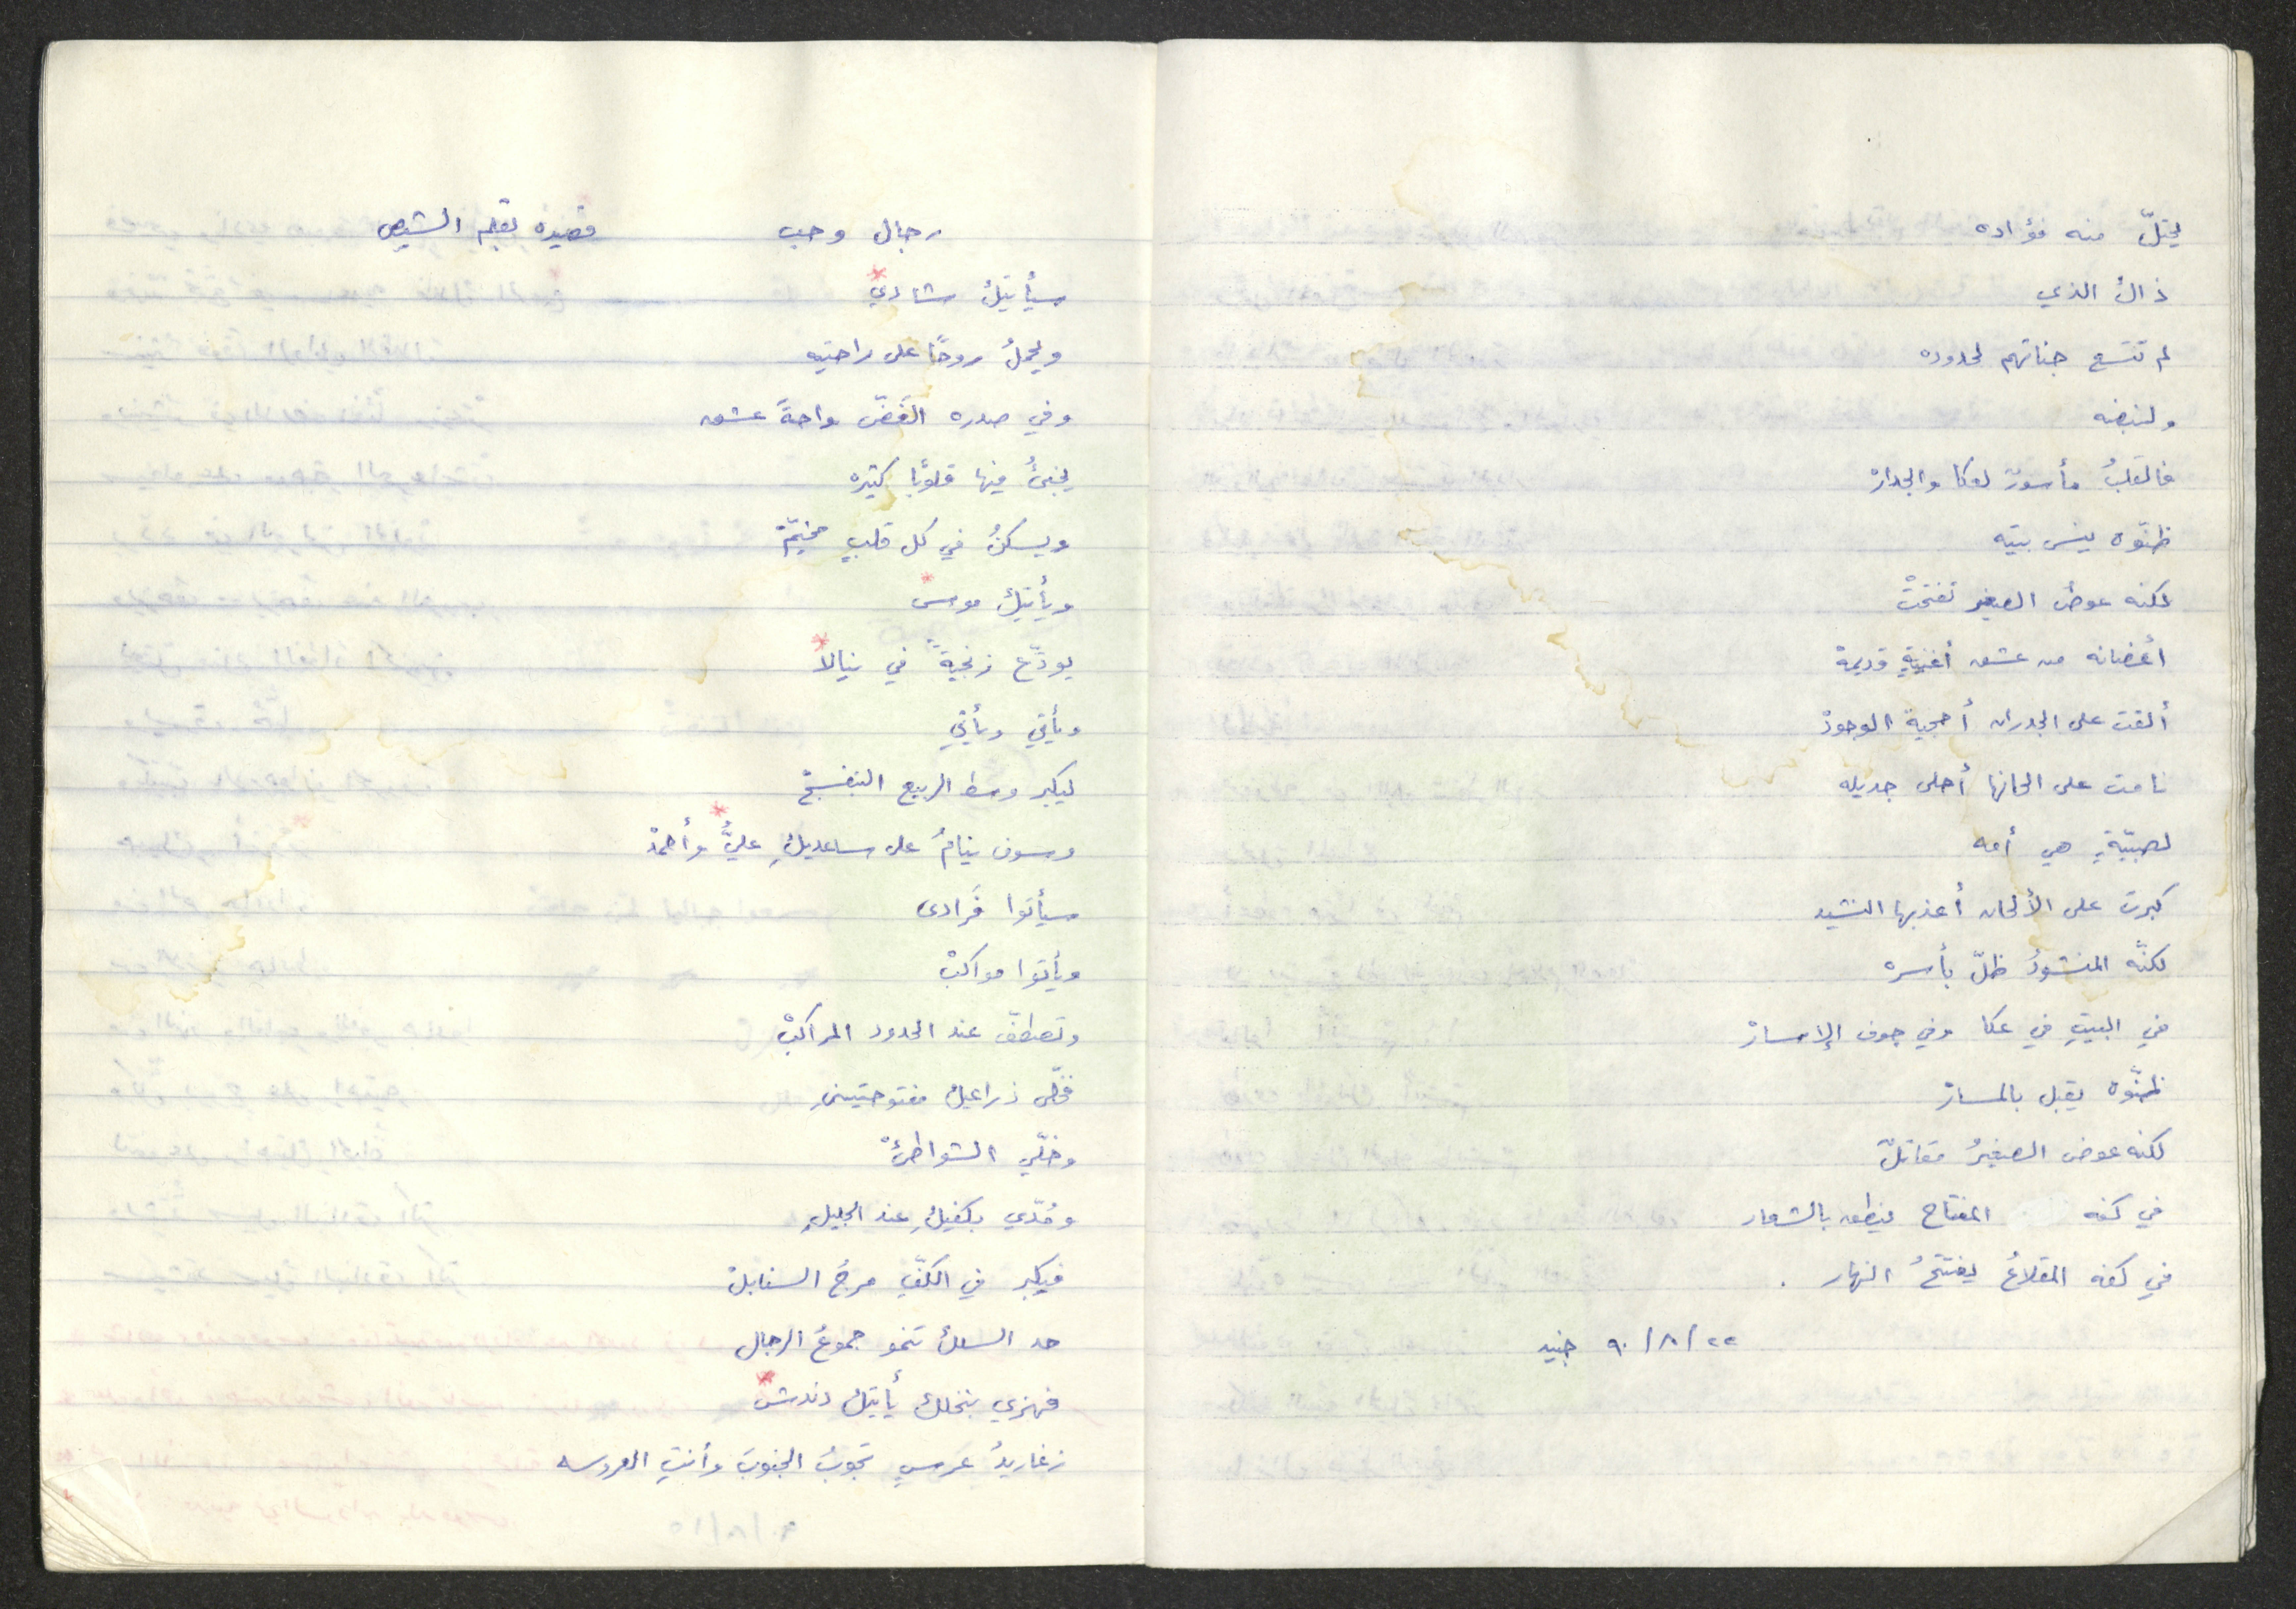 يحتلّ منه فؤاده
ذاك الذي
لم تتسع جناتهم لحدوده
ولنبضه
فالقلبُ مأسورٌ لعكا والجدارْ
ظنّوه ينسى بيته
لكنه عوضُ الصغير تفتحتْ
أغصانه من عشق أغنيةٍ قديمة
ألقت على الجدران أحجية الوجودْ
نامت على الحانها أحلى جديله
لصبيّةٍ هي أمه
كبرت على الألحان أعذبها النشيد
لكنّه المنشودُ ظلّ بأسره
في البيتِ في عكا وفي جوف الإسارْ
ظنّوه يقبل بالمسارْ
لكنه عوض الصغيرُ مقاتلٌ
في كفه المفتاح ينطق بالشعار
في كفه المقلاعُ يفتتحُ النهار .
٢٢/٨/٩٠ جنيد
رجال وحب قصيده بقلم الشيص
سيأتيك شادي*
ويحملُ روحًا على راحتيه
وفي صدره الغضّ واحةُ عشق
يخبئُ فيها قلوبًا كثيره
ويسكنُ في كل قلبٍ مخيّمْ
ويأتيك موسى*
يودّع زنجيةً في نيالا*
ويأتي ويأتي
ليكبر وسط الربيع البنفسجْ
وسوف ينامُ على ساعديكِ عليٌّ* وأحمدْ
سيأتوا فُرادى
ويأتوا مواكبْ
وتصطفّ عند الحدود المراكبْ
فخلّي ذراعيك مفتوحتينِ
وخلّي الشواطئْ
ومُدّي بكفيكِ عند الجليلِ
فيكبر في الكفّ مرجُ السنابلْ
حد السلك تنمو جموعُ الرجال
فهزي بنخلك يأتيك دندش*
زغاريدُ عرسٍ تجوبُ الجنوبَ وأنتِ العروسه